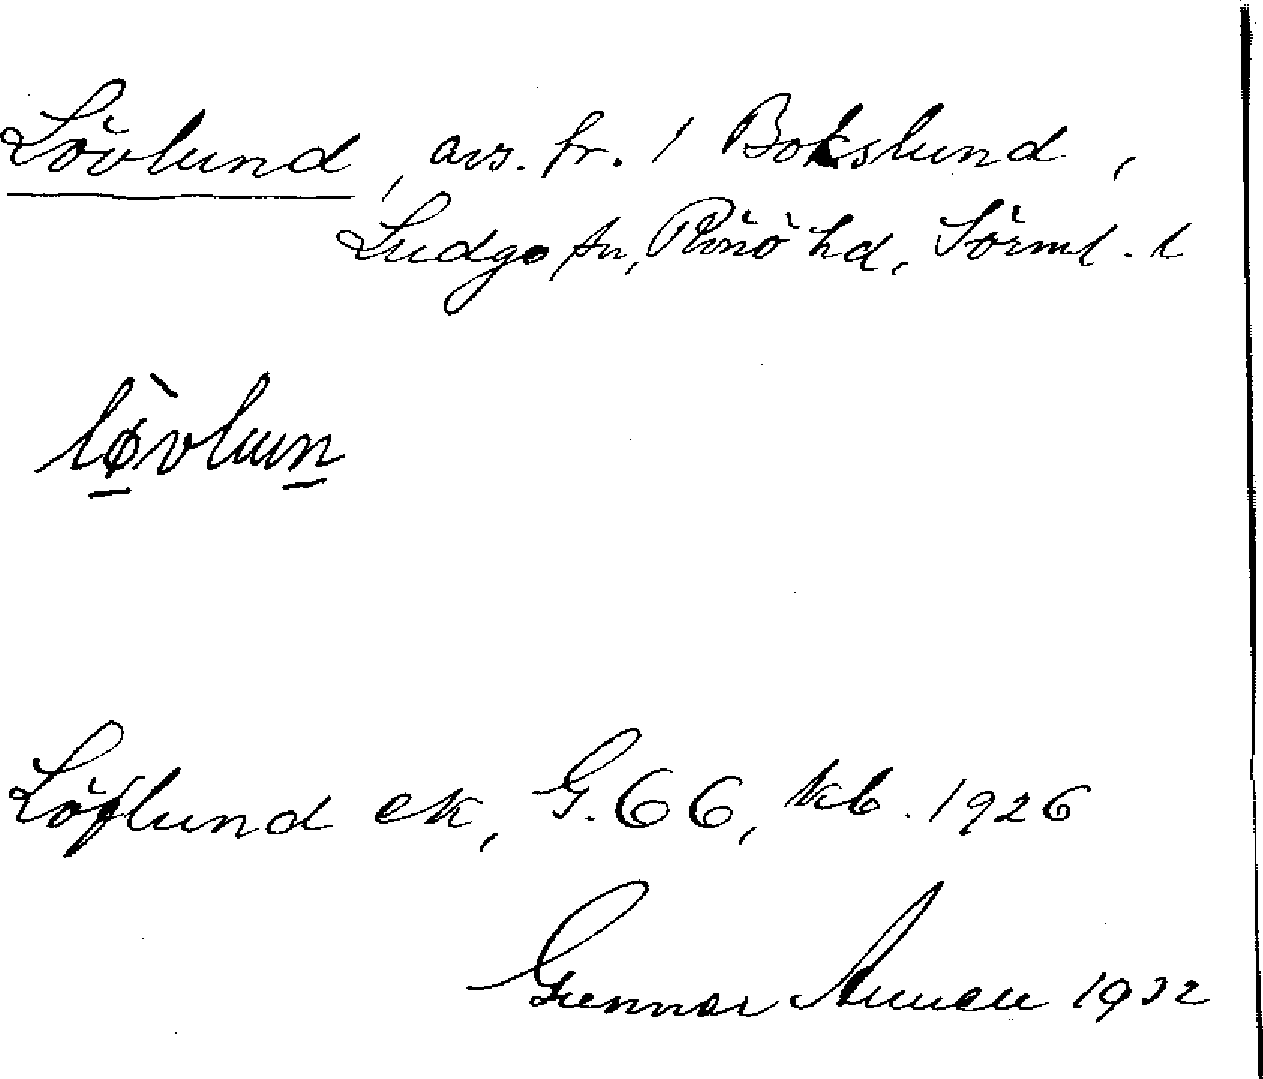 Lövlund, avs. fr. 1 Bokslund,
Ludgo sn, Rönö hd, Sörml. l
lø̀vlun
Löflund ek, G. 66, kb. 1926
Gunnar 1932